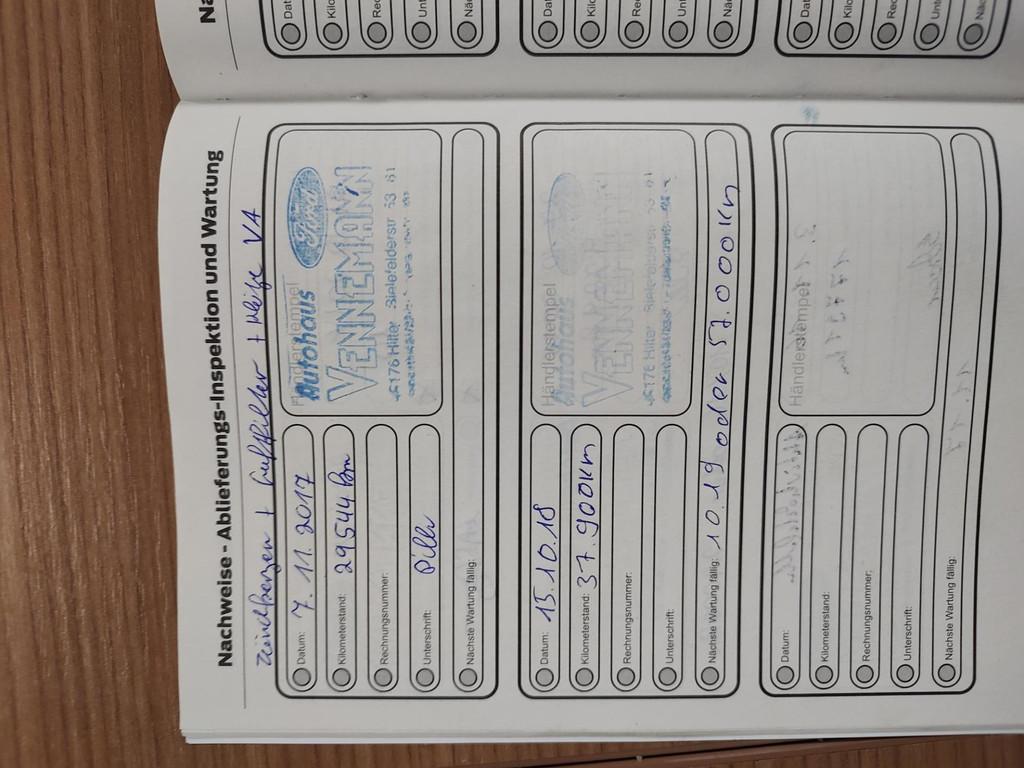 Nachweise - Ablieferungs-Inspektion und Wartung
Zündkerzen + Luftfilter + V4
Datum: 7. 11. 2017
Kilometerstand: 29544 km
Rechnungsnummer:
Unterschrift:
Nächste Wartung fällig:
Händlerstempel
Ford
Autohaus
VENNEMANN
Hilter Bielefelderstr
Datum: 15.10.18
Kilometerstand: 37.900km
Rechnungsnummer:
Unterschrift:
Nächste Wartung fällig: 10.19 oder 57.000km
Händlerstempel
Autohaus
VENNEMANN
Hilter Bielefelderstr
Datum:
Kilometerstand:
Rechnungsnummer:
Unterschrift:
Nächste Wartung fällig:
Händlerstempel